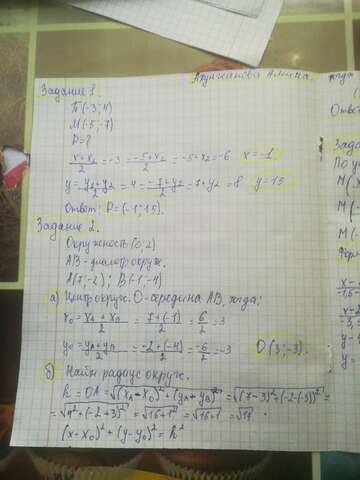 Задание 1.
П(-3;4)
М(-5;-7)
P=?
x+x₂/2 = -3 = -5+x₂/2 = -5+x₂=-6 x=-1
y= y₁+y₂/2 = 4 = -7+y₂/2 = -7+y₂=8 y=15
Ответ: P=(-1;15).
Задание 2.
Окружность (0;2)
AB-диаметр окруж.
A(7;-2); B(-1;-4)
а) Центр окруж. O-середина AB, тогда:
x₀= xA+xB/2 = 7+(-1)/2 = 6/2 = 3
y₀= yA+yB/2 = -2+(-4)/2 = -6/2 = -3 O(3;-3).
б) Найти радиус окруж.
R=OA=√(xA-x₀)²+(yA+y₀)²=√(7-3)²+(-2-(-3))²=
=√4²+(-2+3)²=√16+1²=√16+1=√17.
(x-x₀)²+(y-y₀)²=R²
тогда
Ответ
Зада
По у
M(
M(-
M(-
Форм
x-
y-
y=